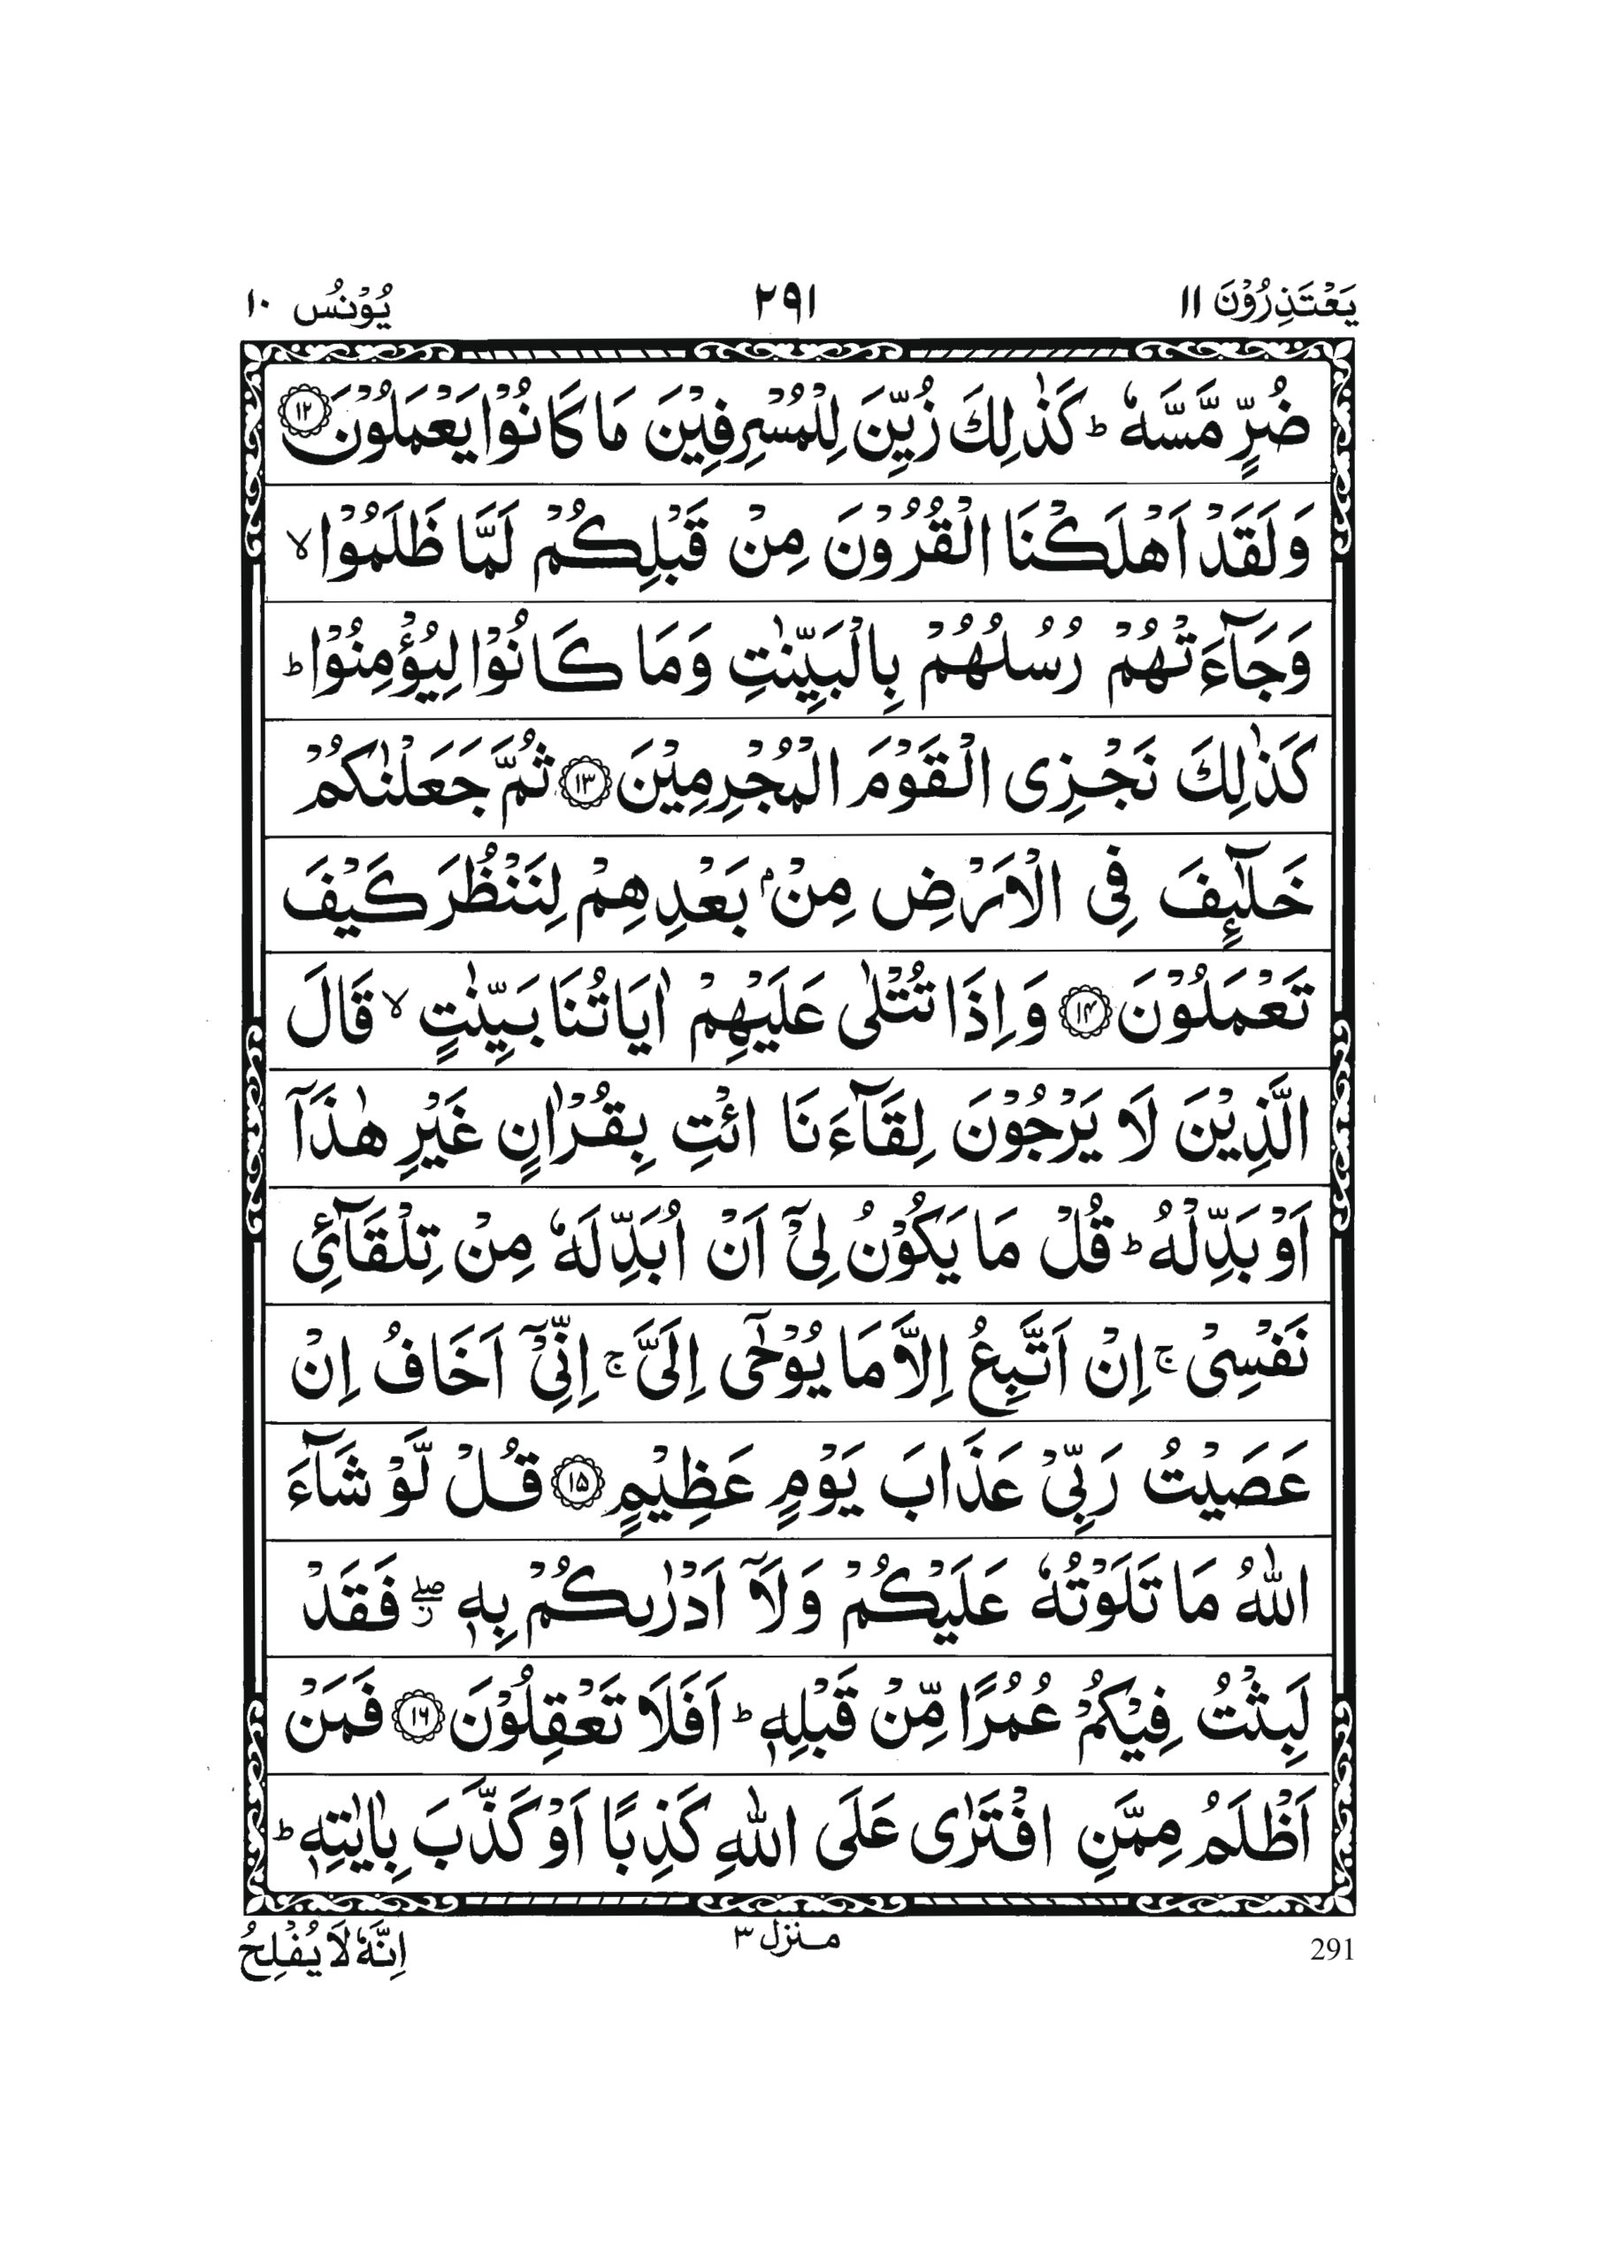 يَعْتَذِرُوْنَ ۱۱ ۲۹۱ يُوْنُس ۱۰
ضُرٍّ مَّسَّهٗ ؕ كَذٰلِكَ زُيِّنَ لِلْمُسْرِفِيْنَ مَا كَانُوْا يَعْمَلُوْنَ ۝۱۲
وَلَقَدْ اَهْلَكْنَا الْقُرُوْنَ مِنْ قَبْلِكُمْ لَمَّا ظَلَمُوْا ۙ
وَجَآءَتْهُمْ رُسُلُهُمْ بِالْبَيِّنٰتِ وَمَا كَانُوْا لِيُؤْمِنُوْا ؕ
كَذٰلِكَ نَجْزِى الْقَوْمَ الْمُجْرِمِيْنَ ۝۱۳ ثُمَّ جَعَلْنٰكُمْ
خَلٰٓئِفَ فِى الْاَرْضِ مِنْۢ بَعْدِهِمْ لِنَنْظُرَ كَيْفَ
تَعْمَلُوْنَ ۝۱۴ وَاِذَا تُتْلٰى عَلَيْهِمْ اٰيَاتُنَا بَيِّنٰتٍ ۙ قَالَ
الَّذِيْنَ لَا يَرْجُوْنَ لِقَآءَنَا ائْتِ بِقُرْاٰنٍ غَيْرِ هٰذَآ
اَوْ بَدِّلْهُ ؕ قُلْ مَا يَكُوْنُ لِىْٓ اَنْ اُبَدِّلَهٗ مِنْ تِلْقَآئِ
نَفْسِىْ ۚ اِنْ اَتَّبِعُ اِلَّا مَا يُوْحٰٓى اِلَىَّ ۚ اِنِّىْٓ اَخَافُ اِنْ
عَصَيْتُ رَبِّىْ عَذَابَ يَوْمٍ عَظِيْمٍ ۝۱۵ قُلْ لَّوْ شَآءَ
اللّٰهُ مَا تَلَوْتُهٗ عَلَيْكُمْ وَلَآ اَدْرٰىكُمْ بِهٖ ۖ فَقَدْ
لَبِثْتُ فِيْكُمْ عُمُرًا مِّنْ قَبْلِهٖ ؕ اَفَلَا تَعْقِلُوْنَ ۝۱۶ فَمَنْ
اَظْلَمُ مِمَّنِ افْتَرٰى عَلَى اللّٰهِ كَذِبًا اَوْ كَذَّبَ بِاٰيٰتِهٖ ؕ
291 منزل ۳ اِنَّهٗ لَا يُفْلِحُ